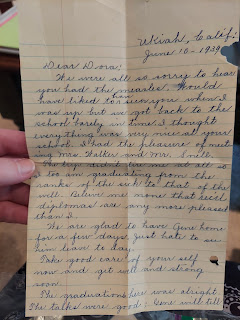 Ukiah, Calif.
June 10 - 1939
Dear Dora:
We were all so sorry to hear
you had the measles. Would
have liked to han seen you when I
was up but we got back to the
school barely in time. I thought
everything was very nice at your
school. I had the pleasure of meet
ing Mrs. Walker and Mr. 
didn't me at all so
I too am graduating from the
ranks of the sick to that of the
well. Believe me none that receive
diplomas are any more pleased
than I.
We are glad to have Gene home
for a few days. Just hate to see
him leave to day.
Take good care of your self
now and get well and strong
soon.
The graduation here was alright
The talks were good. Gene will tell